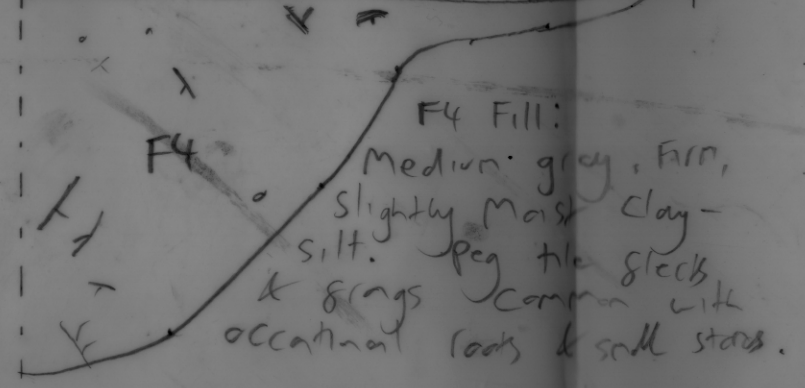 F4 Fill:
F4
Medium grey, Firm,
slightly moist clay-
silt. Peg tile flecks
& frags common with
occational roots & small stones.